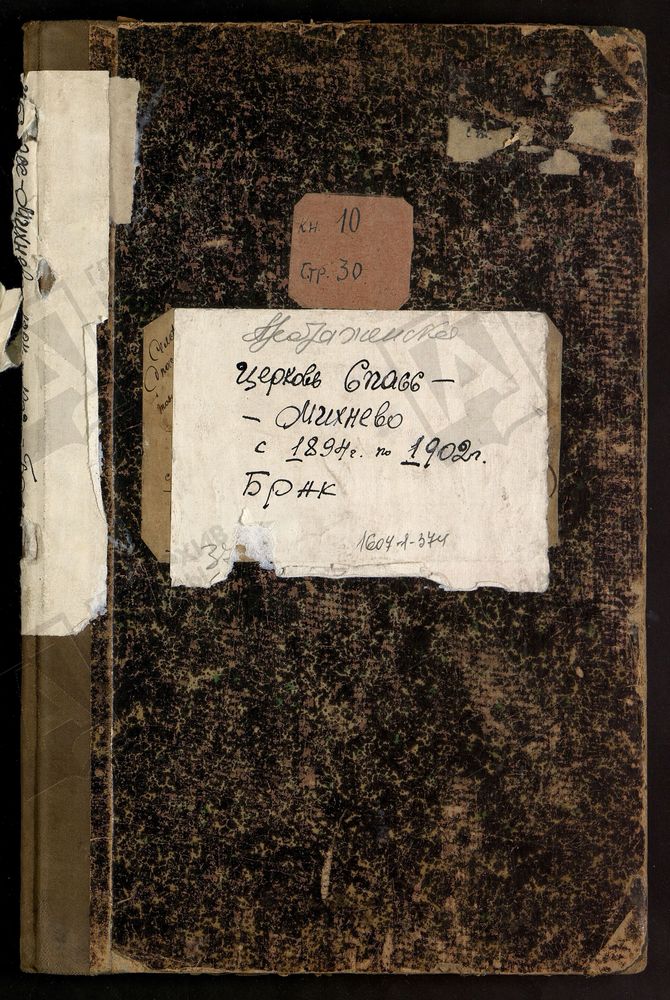 кн 10
стр. 30
Церковь Спасс –
– Михнево
с 1894г. по 1902г.
Брак
1607-1-374